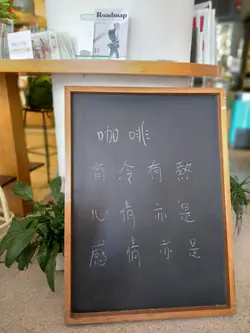 Roadmap
咖啡
有冷有熱
心情亦是
感情亦是